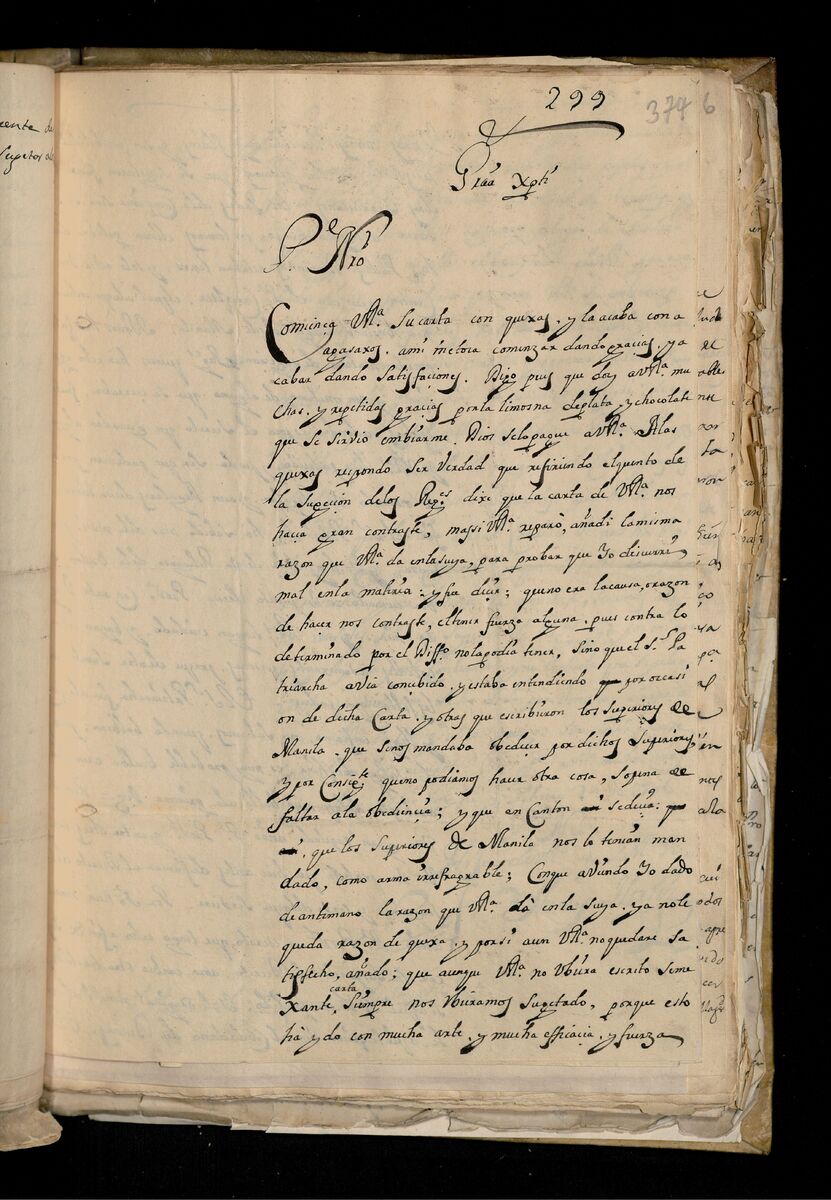 299
374 6
Graâ Xpti
P.e Nrô
Cominça VRa. Su carta con quexas, y la acaba con a
gasaxos. ami me toca comenzar dando gracias, y a
cabar dando satisfaçiones. Digo pues que doy a VRa. mu
chas, y repetidas gracias por la limosna de plata, y chocolate
que se sirvio embiarme. Dios se lo pague a VRa. Alas
quexas respondo ser verdad que refiriendo el quento de
la Sugeçion delos Regs. dixe que la carta de VRa. nos
hacia gran contraste, mas si VRa. reparò, añadi la misma
razon que VRa. da en la suya, para probar que Yo discurri
mal en la materia: y fue decir; que no era la causa, o razon
de haçer nos contraste, el tener fuerza alguna, pues contra lo
determinado por el Diffo. no la podia tener, Sino que el Sr. Pa
triarcha avia concebido, y estaba entendiendo por occasi
on de dicha Carta, y otras que escribieron los Superiores de
Manila, que se nos mandaba obedecer por dichos Superiores,
y por Consigte. que no podiamos hacer otra cosa, so pena de
faltar a la obediençia; y que en Canton se decia:
que los Superiores de Manila nos lo tenian man
dado, como arma irrefragrable; Con que aviendo Yo dado
de antimano la razon que VRa. dà en la suya, ya no le
queda razon de quexa, y por si aun VRa. no quedare sa
tisfecho, añado; que aunque VRa. no ubiera escrito seme
xante carta, siempre nos ubieramos sugetado, porque esto
hà ydo con mucha arte, y mucha efficacia, y fuerza